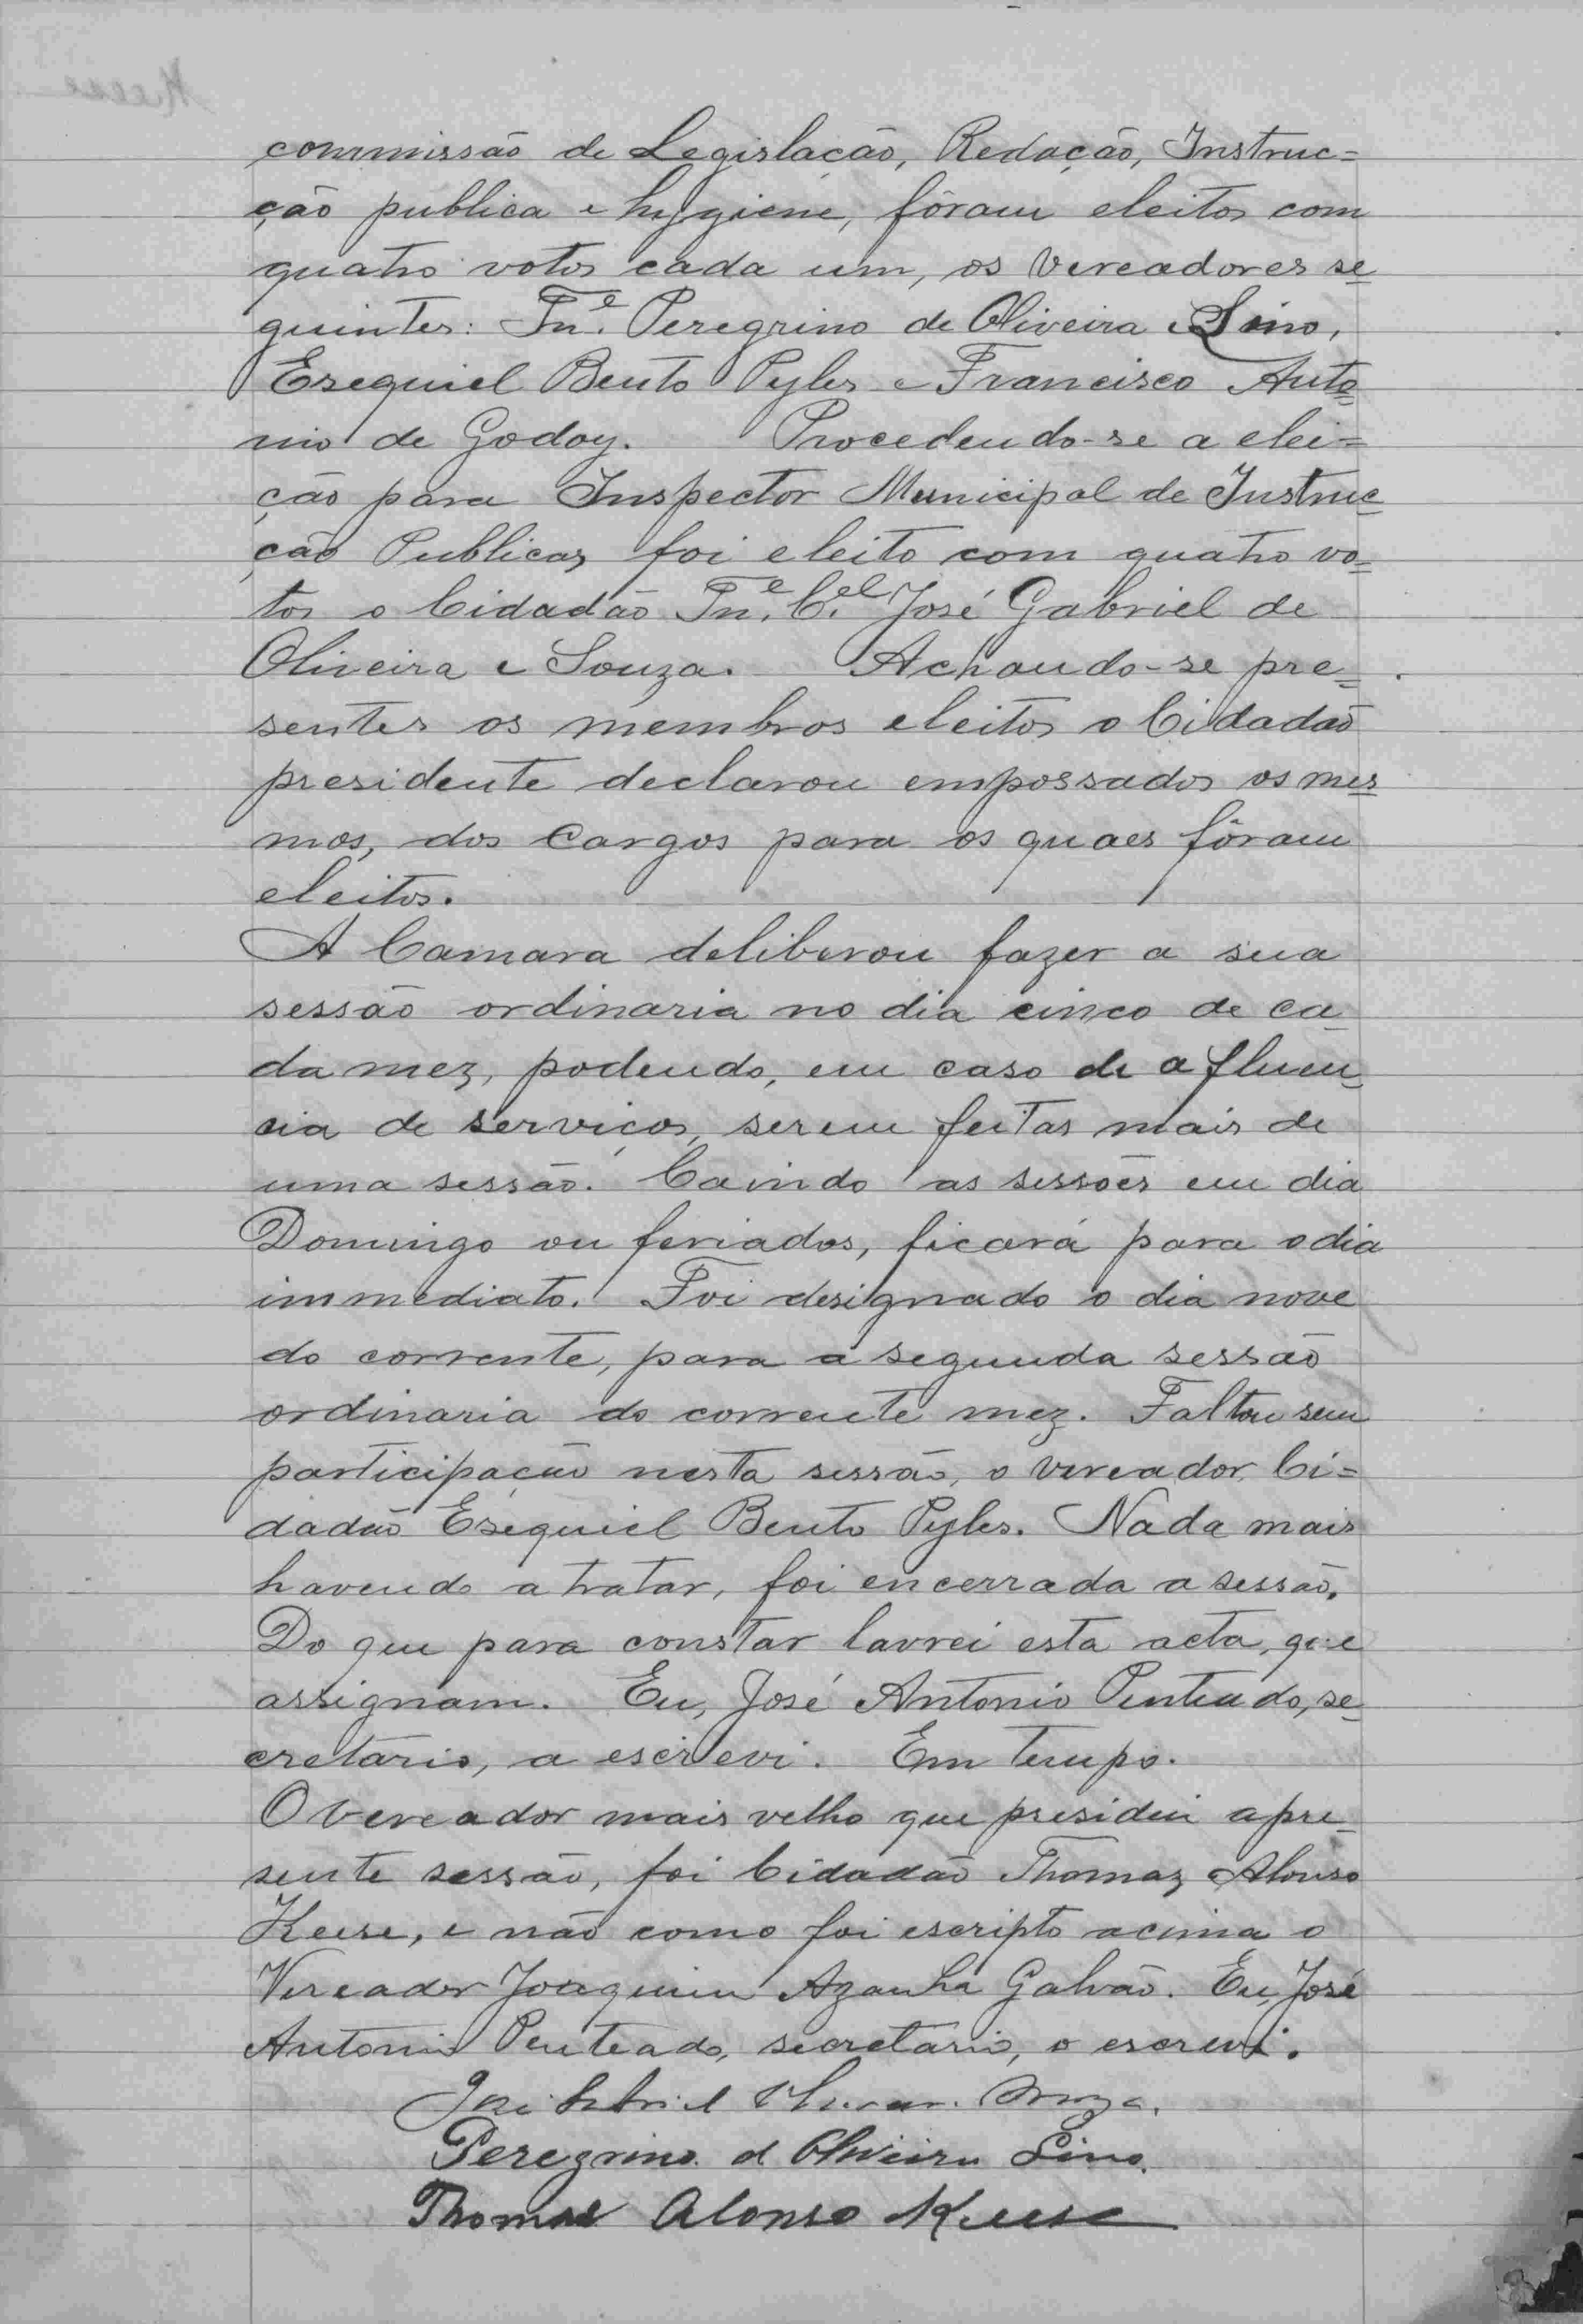 commissão de Legislação, Redação, Instruc=
ção publica e hygiene, fôram eleitos com
quatro votos cada um, os vereadores se
guintes: Tn.e Peregrino de Oliveira Lino,
Esequiel Bento Pyles e Francisco Anto
nio de Godoy. Procedendo-se a elei=
ção para Inspector Municipal de Instruc
ção Publica, foi eleito com quatro vo=
tos o Cidadão Tn.e C.el José Gabriel de
Oliveira e Souza. Achando-se pre=
sentes os membros eleitos o Cidadão
presidente declarou empossados os mes
mos, dos cargos para os quaes fôram
eleitos.
A Camara deliberou fazer a sua
sessão ordinaria no dia cinco de ca
da mez, podendo, em caso de afluen
cia de serviços, serem feitas mais de
uma sessão. Caindo as sessões em dia
Domingo ou feriados, ficará para o dia
immediato. Foi designado o dia nove
do corrente, para a segunda sessão
ordinaria do corrente mez. Faltou sem
participação nesta sessão, o vereador Ci=
dadão Esequiel Bento Pyles. Nada mais
havendo a tratar, foi encerrada a sessão.
Do que para constar lavrei esta acta, que
assignam. Eu, José Antonio Penteado, se
cretario, a escrevi. Em tempo.
O vereador mais velho que presidiu a pre
sente sessão, foi Cidadão Thomaz Alonso
Keese, e não como foi escripto acima o
Vereador Joaquim Azanha Galvão. Eu, José
Antonio Penteado, secretario, o escrevi.
José Gabriel Oliveira Souza.
Peregrino d Oliveira Lino.
Thomas Alonso Keese